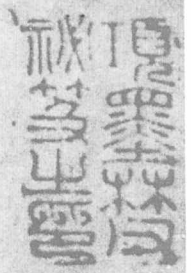 項墨林父
祕笈之印